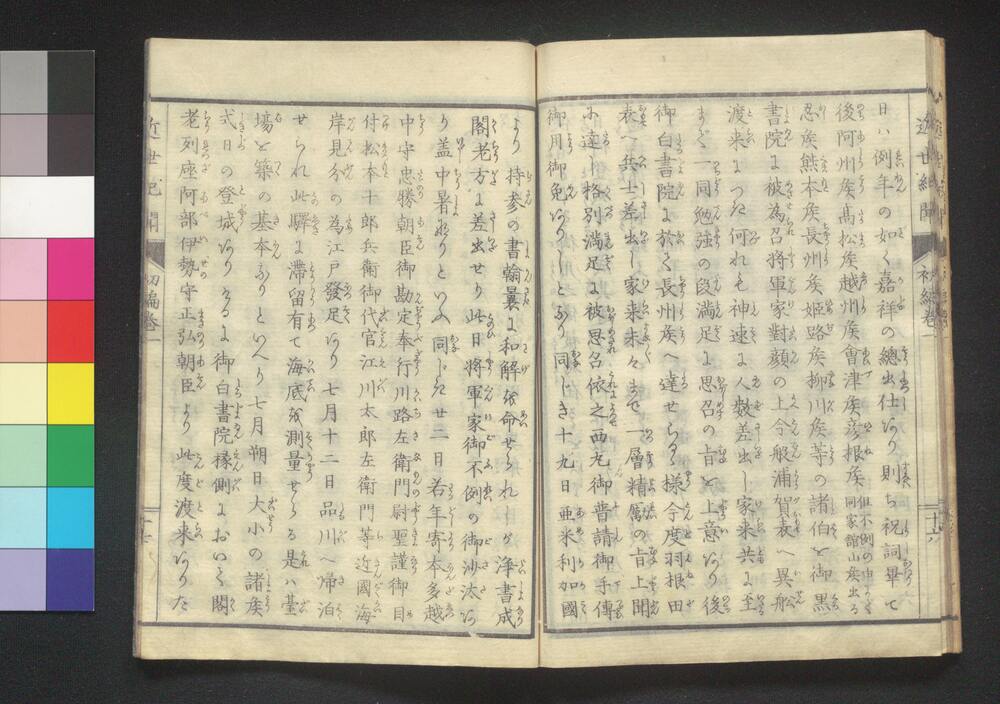 日ハ例年の如く嘉祥の總出仕あり則ち祝詞畢て
後阿州侯高松侯越州侯會津侯彦根侯但不例の中
同家舘山侯出る
忍侯熊本侯長州侯姫路侯柳川侯等の諸伯を御黒
書院に被為召將軍家對顔の上今般浦賀表へ異舩
渡来につき何れも神速に人数差出し家来共に至
まで一同勉強の段満足に思召の旨を上意あり後
御白書院に於て長州侯へ達せらるゝ様今度羽根田
表へ兵士差出し家来末々まで一層精厲の旨上聞
に達し格別満足に被思召依之西丸御普請御手傳
御用御免ありしとなり同じき十九日亜米利加國
より持参の書翰曩に和解を命せられしが浄書成
閣老方に差出せり此日將軍家御不例の御沙汰あ
り蓋中暑なりといふ同じき廿二日若年寄本多越
中守忠勝朝臣御勘定奉行川路左衛門尉聖謨御目
付松本十郎兵衛御代官江川太郎左衛門等近國海
岸見分の為江戸發足あり七月十二日品川へ帰泊
せられ此驛に滞留有て海底を測量せらる是ハ臺
場を築の基本なりといへり七月朔日大小の諸侯
式日の登城ありけるに御白書院椽側において閣
老列座阿部伊勢守正弘朝臣より此度渡来ありた
近世紀聞
初編巻一